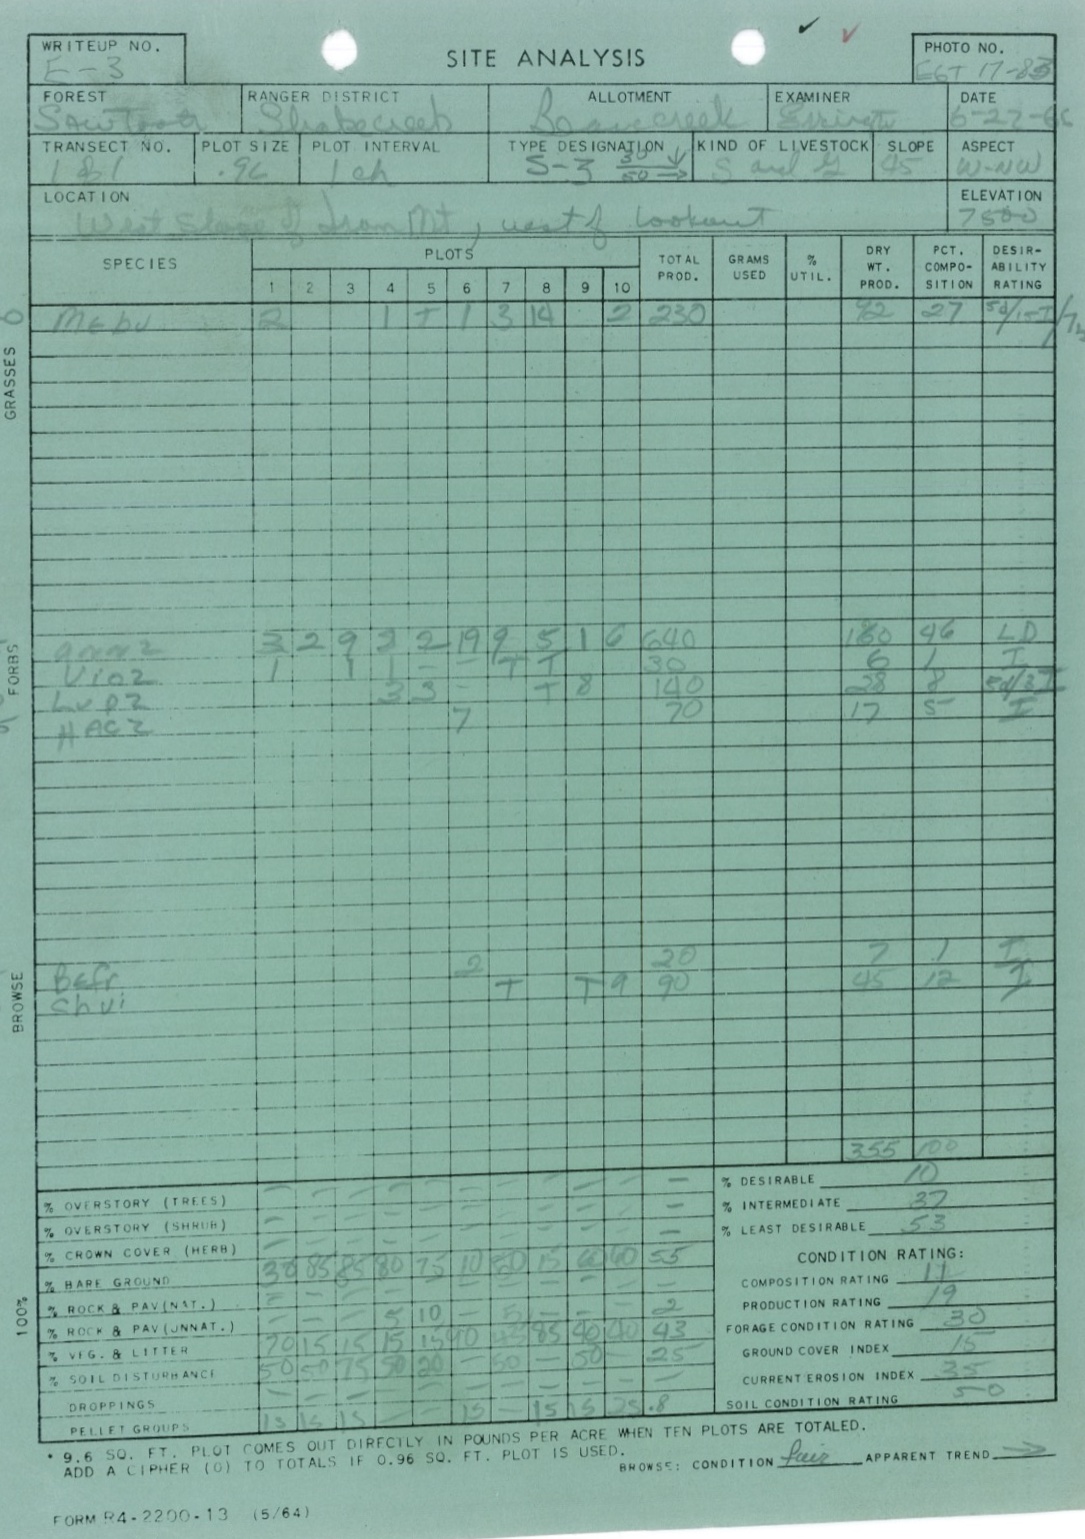 WRITEUP NO.
E-3
SITE ANALYSIS
PHOTO NO.
EGT 17-83
FOREST
Sawtooth
RANGER DISTRICT
ALLOTMENT
EXAMINER
DATE
6-27-66
TRANSECT NO.
1 & 1
PLOT SIZE
.96
PLOT INTERVAL
1 ch
TYPE DESIGNATION
S-3
KIND OF LIVESTOCK
S and G
SLOPE
45
ASPECT
W-NW
LOCATION
West Slope of Iron Mt, west of lookout
ELEVATION
7500
SPECIES PLOTS TOTAL PROD. GRAMS USED % UTIL. DRY WT. PROD. PCT. COMPO-SITION DESIR-ABILITY RATING
1 2 3 4 5 6 7 8 9 10
GRASSES
Mebu 2 1 T 1 3 14 2 230 92 27
FORBS
3 2 9 2 2 19 9 5 1 6 640 180 46 LD
Vio2 1 1 1 - - T T 30 6 1 I
Lup2 3 3 - T 8 140 28 8
HAC2 7 70 17 5 I
BROWSE
Befr 2 20 7 1 I
Shvi T T 9 90 45 12 I
355 100
100%
% OVERSTORY (TREES)
% OVERSTORY (SHRUB)
% CROWN COVER (HERB)
% BARE GROUND 30 85 85 80 75 10 50 15 60 60 55
% ROCK & PAV(NAT.)
% ROCK & PAV(UNNAT.) - - - 5 10 - 5 - - - 2
% VEG. & LITTER 70 15 15 15 15 90 45 85 40 40 43
% SOIL DISTURBANCE 50 50 75 50 20 - 50 - 50 - 25
DROPPINGS
PELLET GROUPS 15 15 15 - - 15 - 15 15 25 .8
% DESIRABLE 10
% INTERMEDIATE 37
% LEAST DESIRABLE 53
CONDITION RATING:
COMPOSITION RATING 11
PRODUCTION RATING 19
FORAGE CONDITION RATING 30
GROUND COVER INDEX 15
CURRENT EROSION INDEX 35
SOIL CONDITION RATING 50
* 9.6 SQ. FT. PLOT COMES OUT DIRECILY IN POUNDS PER ACRE WHEN TEN PLOTS ARE TOTALED.
ADD A CIPHER (0) TO TOTALS IF 0.96 SQ. FT. PLOT IS USED.
BROWSE: CONDITION fair APPARENT TREND
FORM R4-2200-13 (5/64)